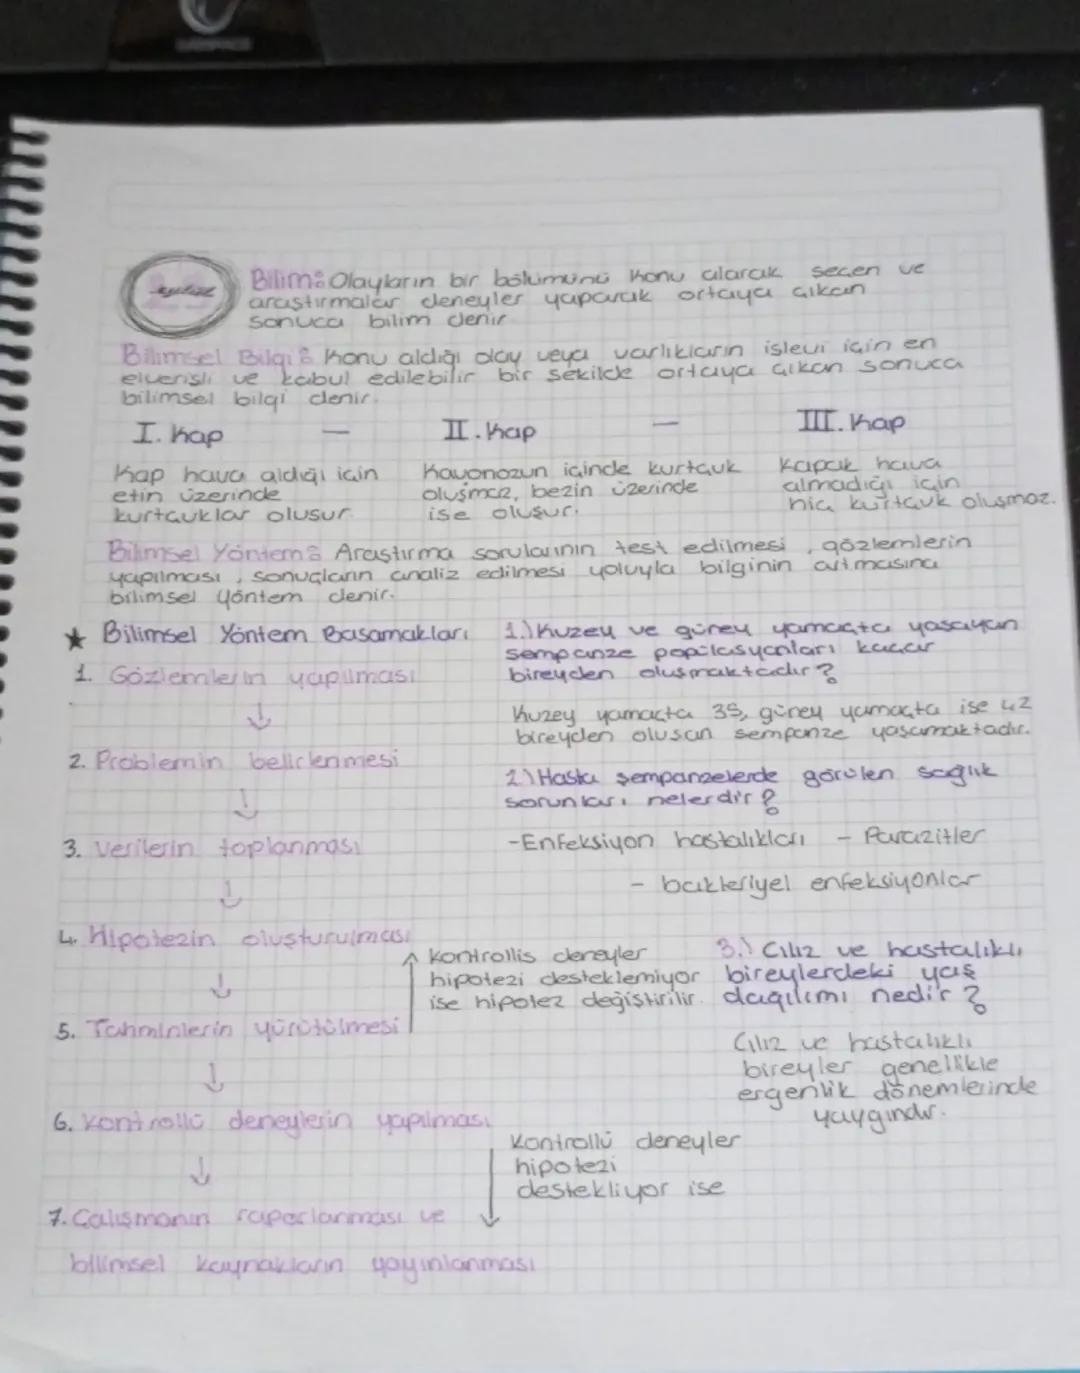 Bilim: Olayların bir bölümünü konu alarak seçen ve
araştırmalar deneyler yaparak ortaya çıkan
sonuca bilim denir
Bilimsel Bilgi: Konu aldığı olay veya varlıkların işlevi için en
elverişli ve kabul edilebilir bir şekilde ortaya çıkan sonuca
bilimsel bilgi denir.
I. Kap - II. Kap - III. Kap
Kap hava aldığı için
etin üzerinde
kurtçuklar oluşur
Kavonozun içinde kurtçuk
oluşmaz, bezin üzerinde
ise oluşur.
Kapak hava
almadığı için
hiç kurtçuk oluşmaz.
Bilimsel Yöntem: Araştırma sorularının test edilmesi, gözlemlerin
yapılması, sonuçların analiz edilmesi yoluyla bilginin artmasına
bilimsel yöntem denir.
★ Bilimsel Yöntem Basamakları
1. Gözlemlerin yapılması
↓
2. Problemin belirlenmesi
↓
3. Verilerin toplanması
↓
4. Hipotezin oluşturulması
↓
5. Tahminlerin yürütülmesi
↓
6. Kontrollü deneylerin yapılması
↓
7. Çalışmanın raporlanması ve
bilimsel kaynakların yayınlanması
Kontrollis deneyler
hipotezi desteklemiyor
ise hipotez değiştirilir.
Kontrollü deneyler
hipotezi
destekliyor ise
1.) Kuzey ve güney yamaçta yaşayan
şempanze popülasyonları kaçar
bireyden oluşmaktadır?
Kuzey yamaçta 35, güney yamaçta ise 42
bireyden oluşan şempanze yaşamaktadır.
2.) Hasta şempanzelerde görülen sağlık
sorunları nelerdir?
-Enfeksiyon hastalıkları - Parazitler
- bakteriyel enfeksiyonlar
3.) Cılız ve hastalıklı
bireylerdeki yaş
dağılımı nedir?
Cılız ve hastalıklı
bireyler genellikle
ergenlik dönemlerinde
yaygındır.